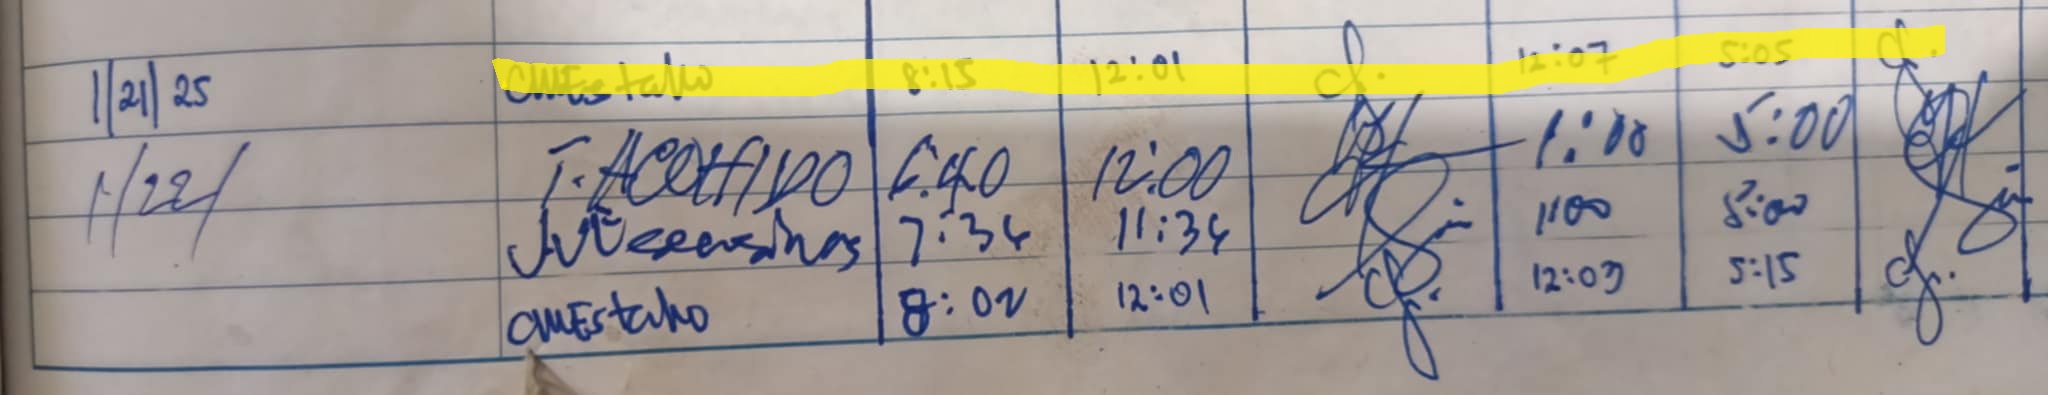 1/21/25 CMEstaño 8:15 12:01 12:07 5:05
1/22/ T. ACOHIDO 6:40 12:00 1:00 5:00
7:34 11:34 1:00 5:00
CMEstaño 8:02 12:01 12:03 5:15